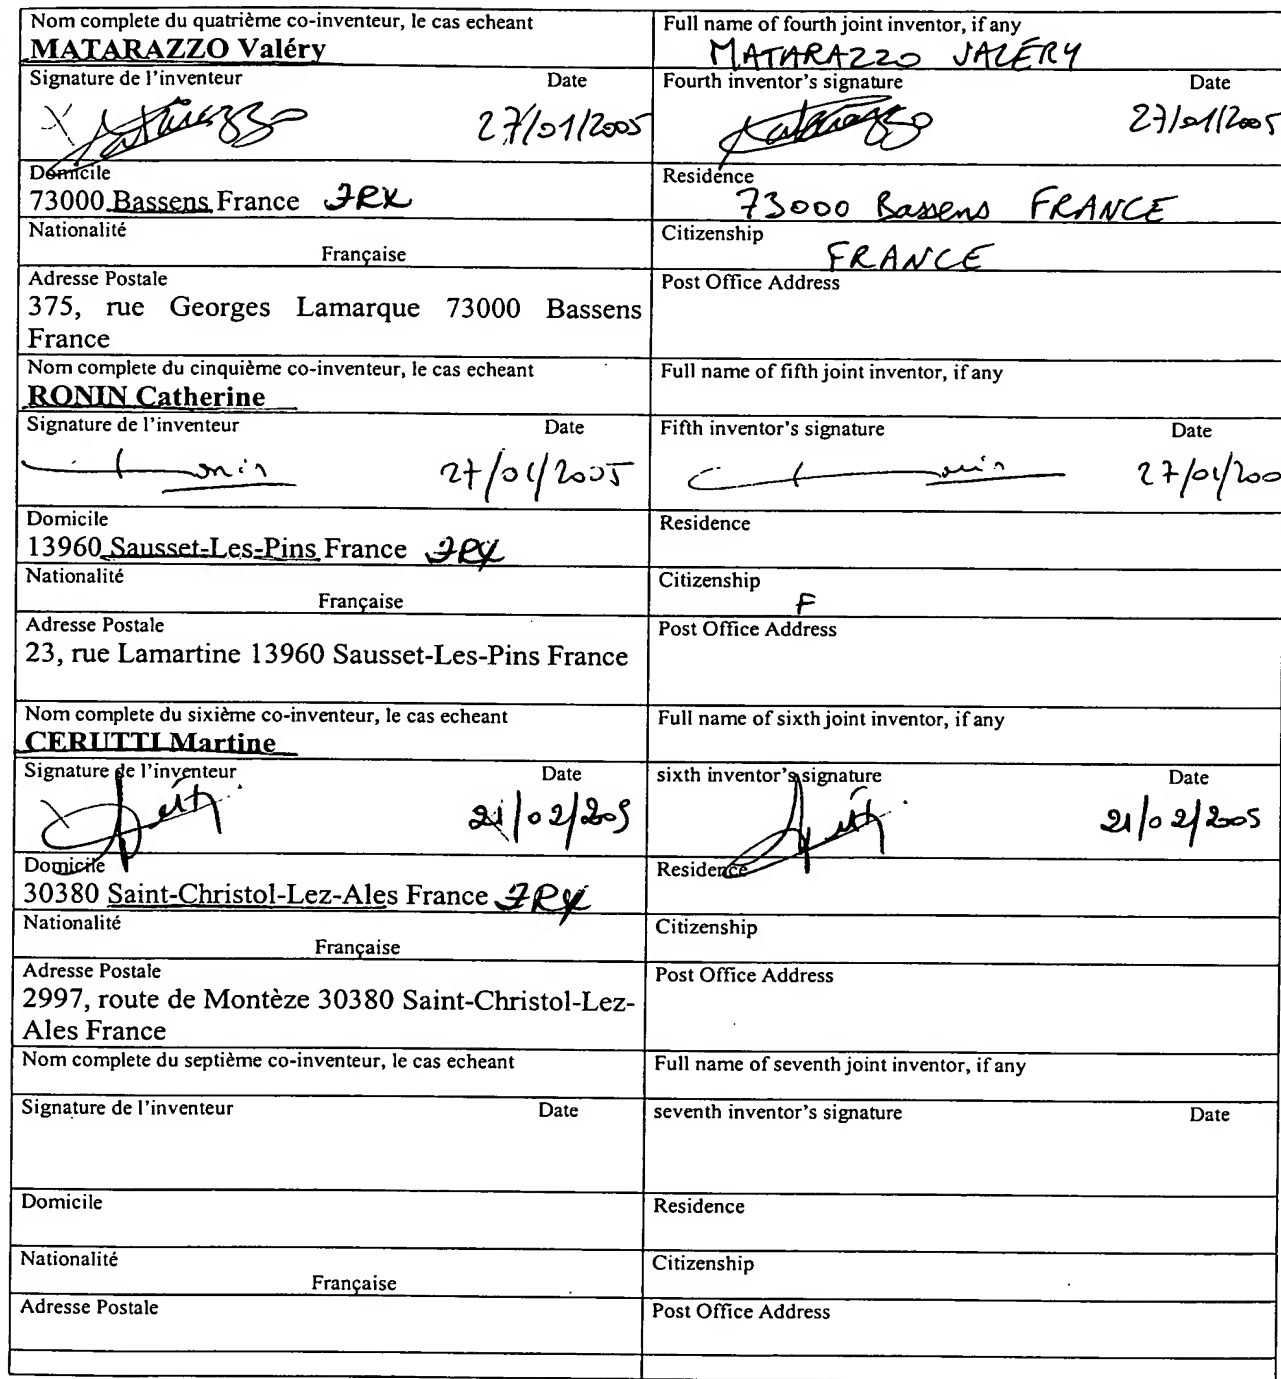 Nom complete du quatrième co-inventeur, le cas echeant
MATARAZZO Valéry
Full name of fourth joint inventor, if any
MATARAZZO VALÉRY
Signature de l'inventeur Date
27/01/2005
Fourth inventor's signature Date
27/01/2005
Domicile
73000 Bassens France FRX
Residence
73000 Bassens FRANCE
Nationalité
Française
Citizenship
FRANCE
Adresse Postale
375, rue Georges Lamarque 73000 Bassens
France
Post Office Address
Nom complete du cinquième co-inventeur, le cas echeant
RONIN Catherine
Full name of fifth joint inventor, if any
Signature de l'inventeur Date
27/01/2005
Fifth inventor's signature Date
27/01/200
Domicile
13960 Sausset-Les-Pins France FRX
Residence
Nationalité
Française
Citizenship
F
Adresse Postale
23, rue Lamartine 13960 Sausset-Les-Pins France
Post Office Address
Nom complete du sixième co-inventeur, le cas echeant
CERUTTI Martine
Full name of sixth joint inventor, if any
Signature de l'inventeur Date
21/02/2005
sixth inventor's signature Date
21/02/2005
Domicile
30380 Saint-Christol-Lez-Ales France FRX
Residence
Nationalité
Française
Citizenship
Adresse Postale
2997, route de Montèze 30380 Saint-Christol-Lez-
Ales France
Post Office Address
Nom complete du septième co-inventeur, le cas echeant
Full name of seventh joint inventor, if any
Signature de l'inventeur Date
seventh inventor's signature Date
Domicile
Residence
Nationalité
Française
Citizenship
Adresse Postale
Post Office Address